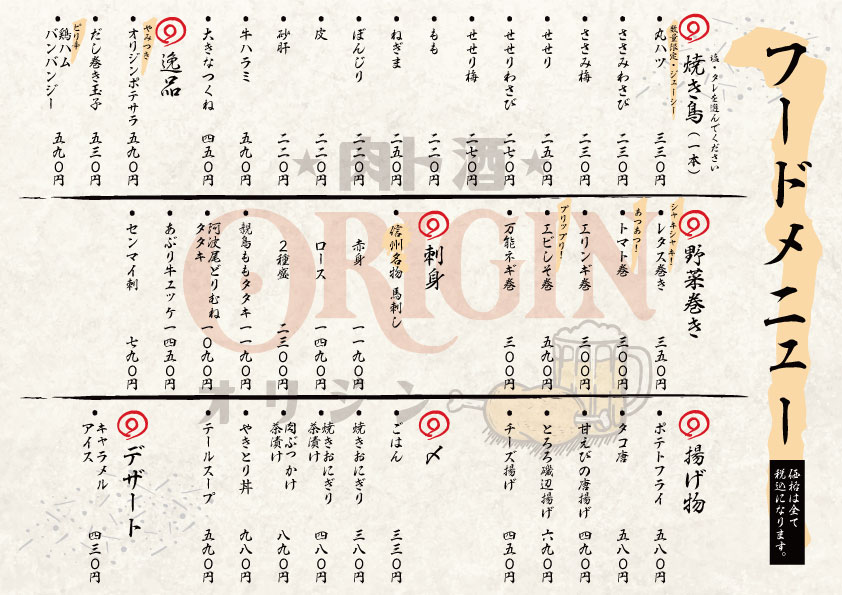 フードメニュー
価格は全て
税込になります。
焼き鳥(一本)
塩・タレを選んでください
数量限定・ジューシー
・丸ハツ 三三〇円
・ささみわさび 二三〇円
・ささみ梅 二三〇円
・せせり 二五〇円
・せせりわさび 二七〇円
・せせり梅 二七〇円
・もも 二二〇円
・ねぎま 二五〇円
・ぼんじり 二二〇円
・皮 二二〇円
・砂肝 二二〇円
・牛ハラミ 五九〇円
・大きなつくね 四五〇円
逸品
やみつき
・オリジンポテサラ 五九〇円
・だし巻き玉子 五三〇円
ピリ辛
・鶏ハム
バンバンジー 五九〇円
野菜巻き
シャキシャキ!
・レタス巻き 三五〇円
あつあつ!
・トマト巻 三〇〇円
・エリンギ巻 三〇〇円
プリップリ!
・エビしそ巻 五九〇円
・万能ネギ巻 三〇〇円
刺身
・信州名物 馬刺し
赤身 一一九〇円
ロース 一四九〇円
2種盛 二三〇〇円
・親鳥ももタタキ 一一九〇円
・阿波尾どりむね
タタキ 一〇九〇円
・あぶり牛エッケ 一四五〇円
・センマイ刺 七九〇円
揚げ物
・ポテトフライ 五八〇円
・タコ唐 五八〇円
・甘えびの唐揚げ 四九〇円
・とろろ磯辺揚げ 六九〇円
・チーズ揚げ 四五〇円
〆
・ごはん 三三〇円
・焼きおにぎり 三八〇円
・焼きおにぎり
茶漬け 四八〇円
・肉ぶっかけ
茶漬け 八九〇円
・やきとり丼 九八〇円
・テールスープ 五九〇円
デザート
・キャラメル
アイス 四三〇円
★肉ト酒★
ORIGIN
オリジン